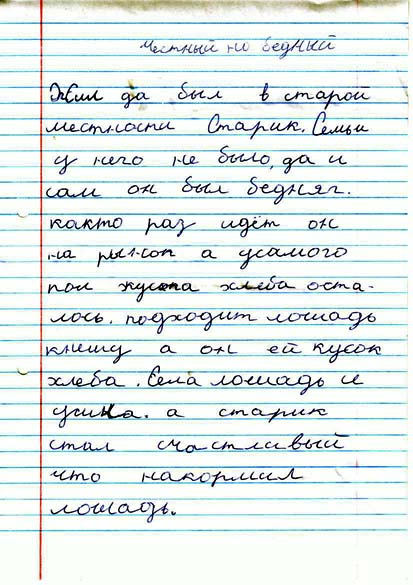 Честный но бедный
Жил да был в старой
местности Старик. Семьи
у него не было, да и
сам он был бедняг.
както раз идёт он
на рынок а усамого
пол куска хлеба оста-
лось. подходит лошадь
кнему а он ей кусок
хлеба. Села лошадь и
а старик
стал счастливый
что накормил
лошадь.